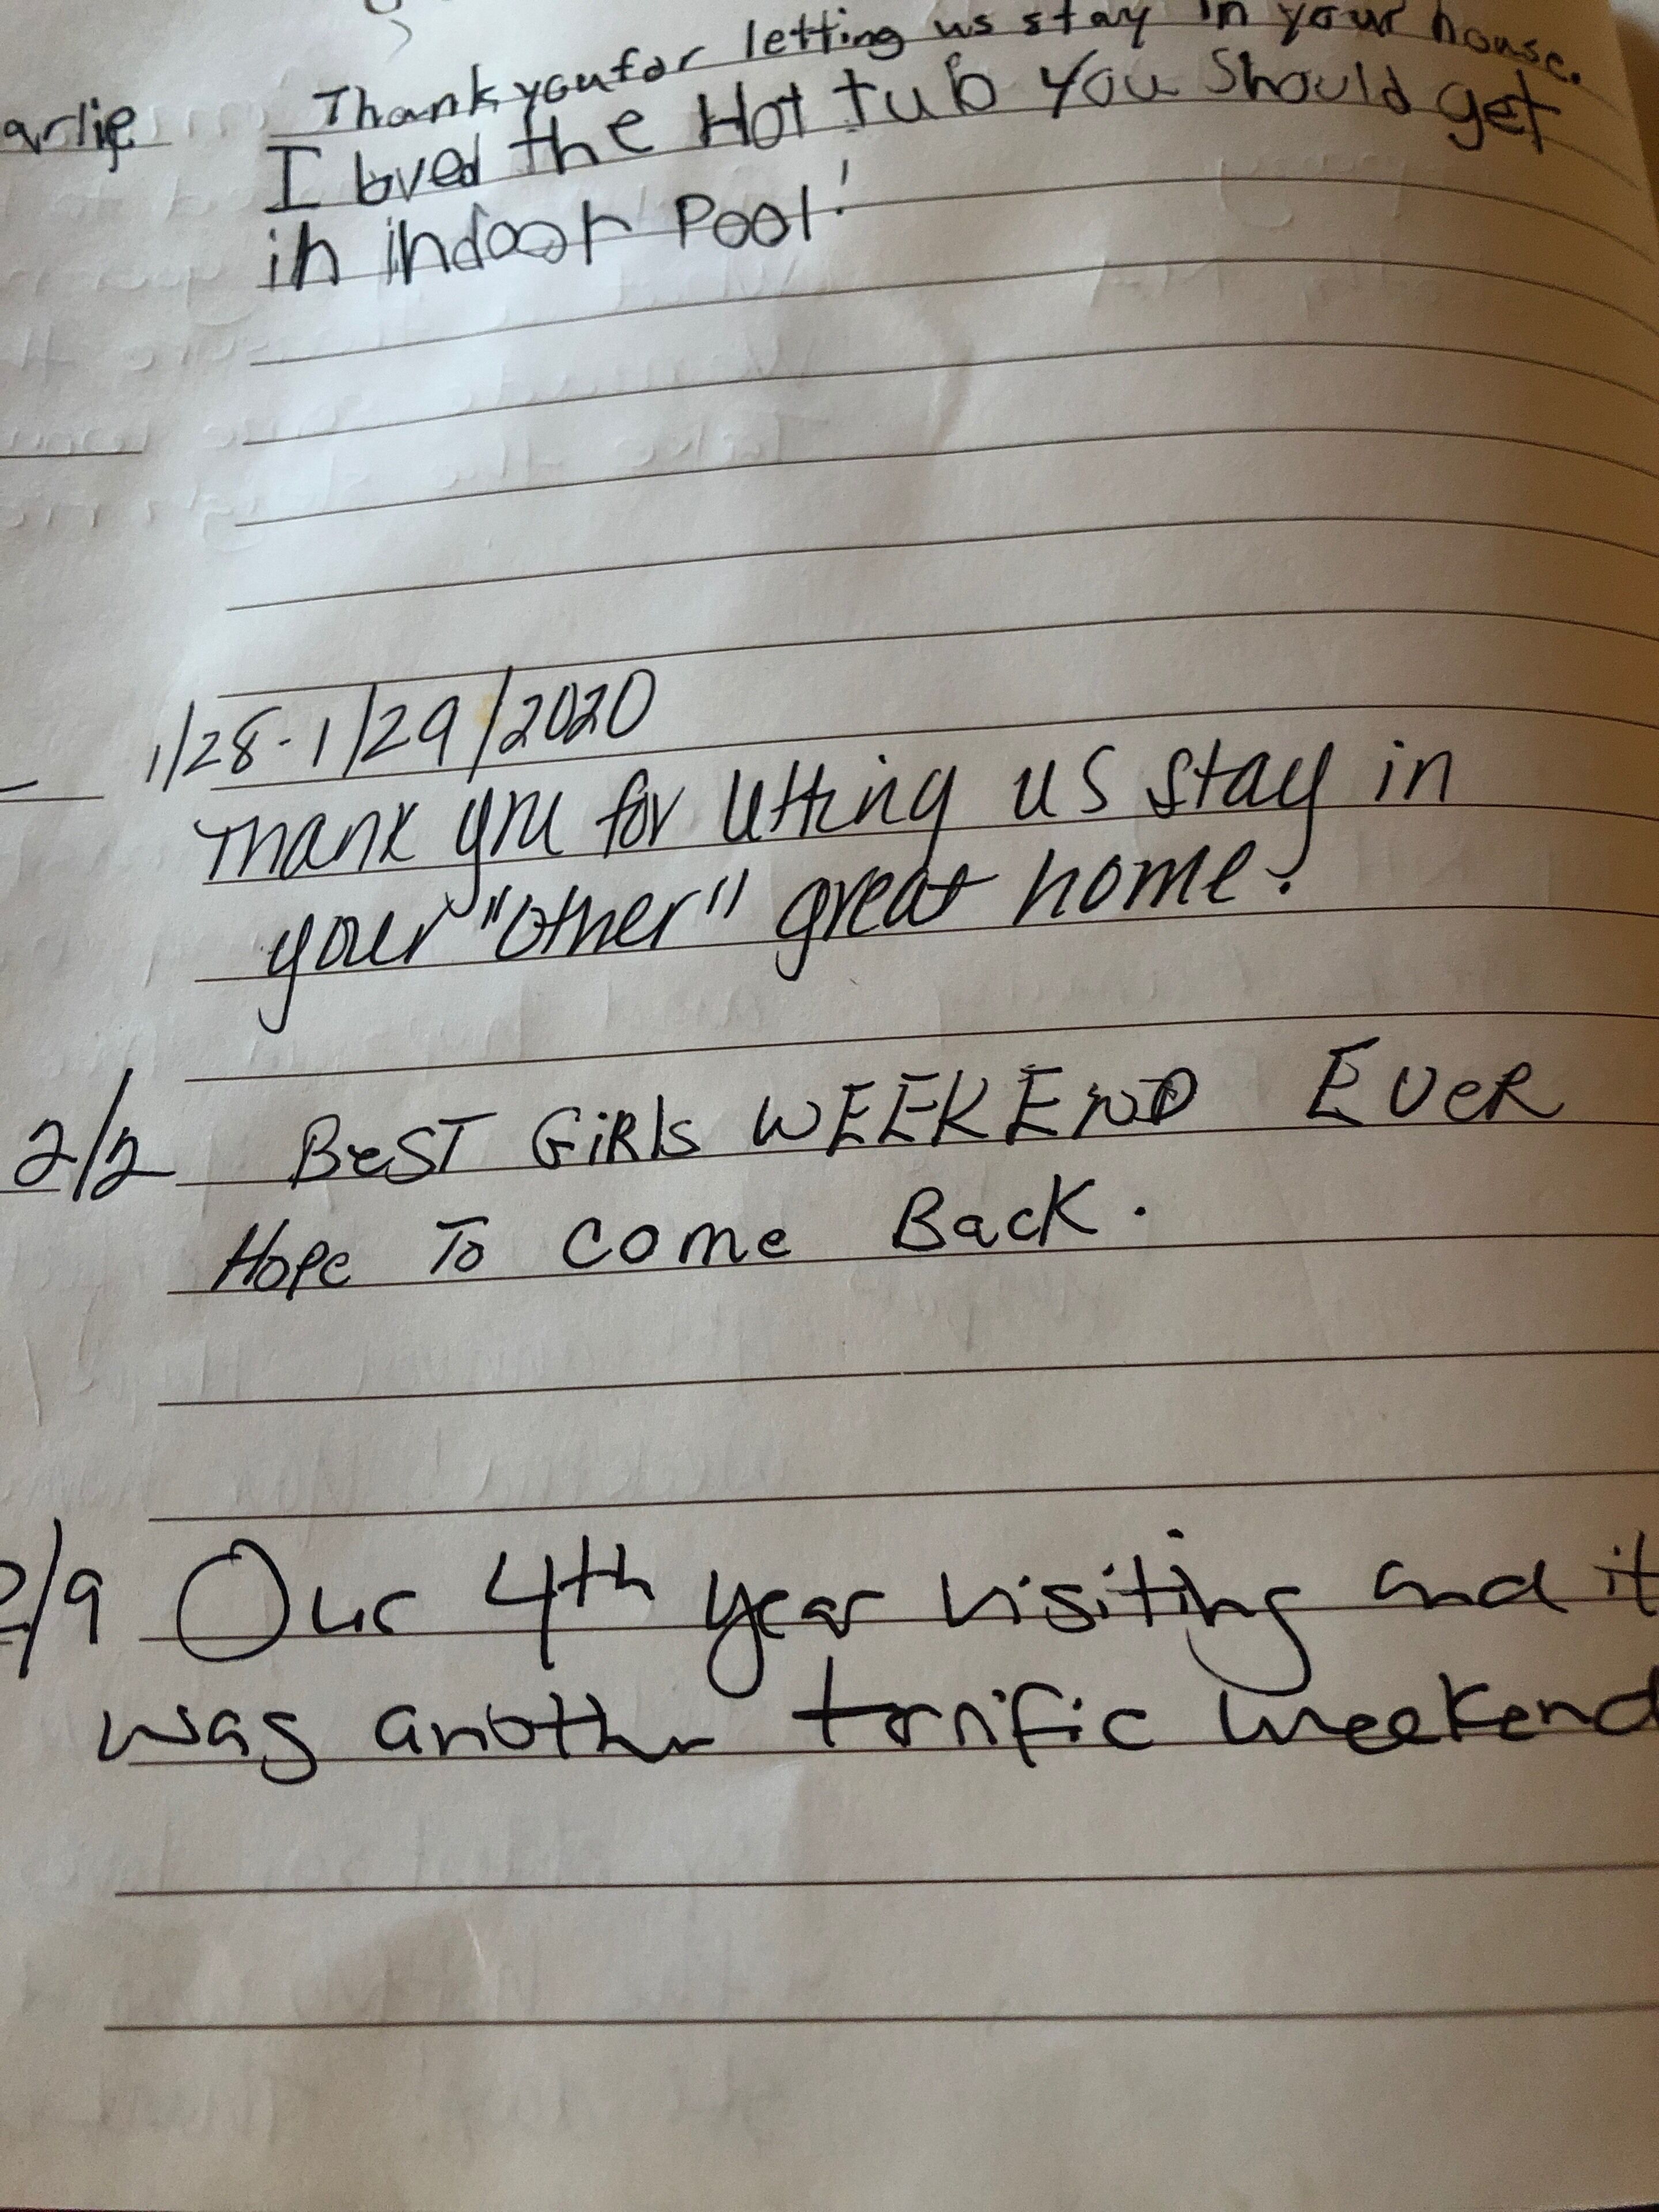 Thank you for letting us stay in your house.
arlie I loved the Hot tub You Should get
in indoor Pool!
1/28-1/29/2020
Thank you for letting us stay in
your "other" great home.
2/2 BeST GiRls WEEKEND EVeR
Hope To come Back.
2/9 Our 4th year visiting and it
was another terrific weekend